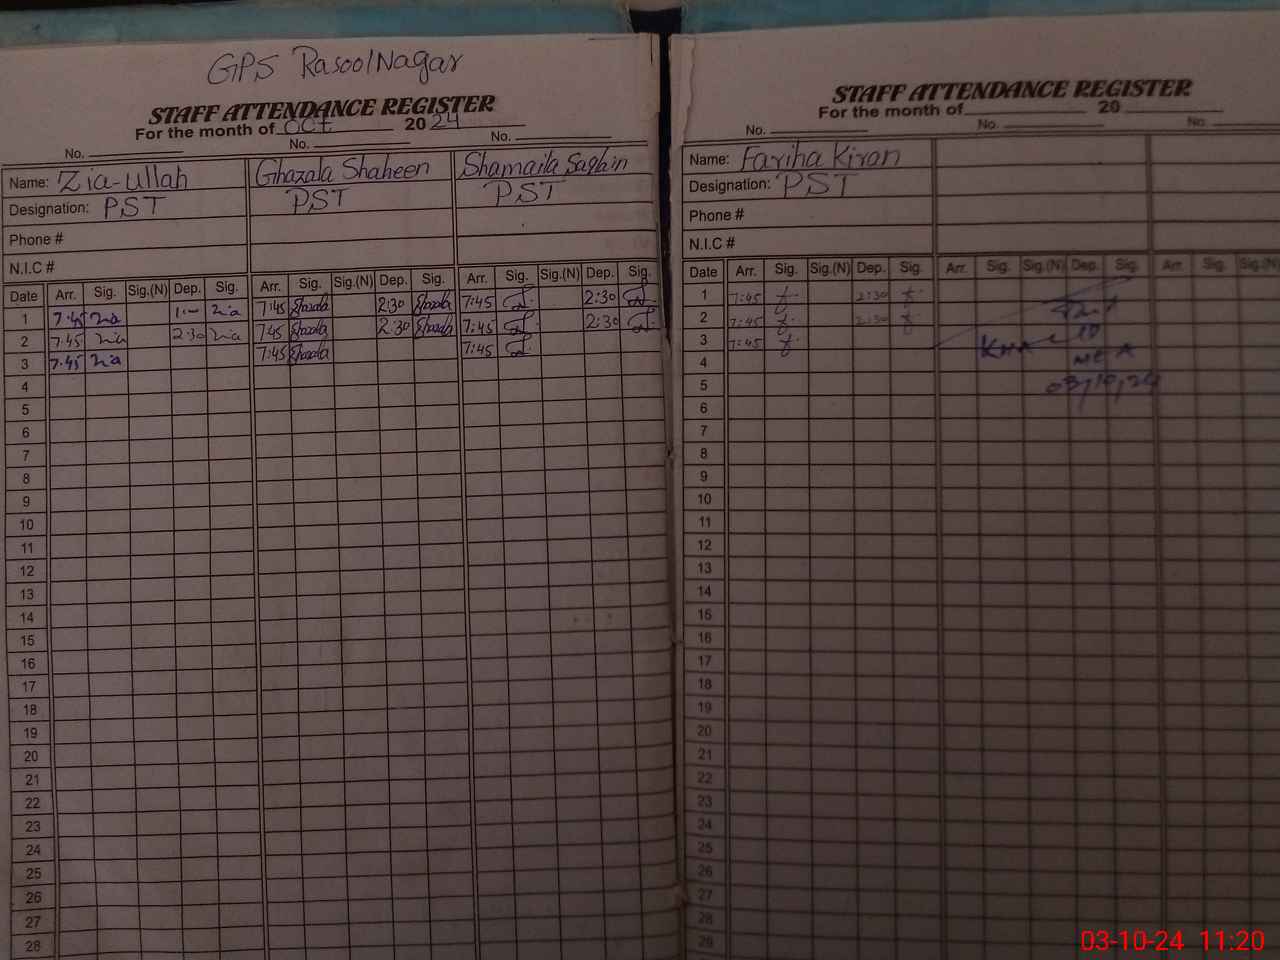 GPS RasoolNagar
STAFF ATTENDANCE REGISTER
For the month of Oct 2024
No. No. No.
Name: Zia-ullah Ghazala Shaheen Shamaila Saqlain
Designation: PST PST PST
Phone #
N.I.C #
Date Arr. Sig. Sig.(N) Dep. Sig. Arr. Sig. Sig.(N) Dep. Sig. Arr. Sig. Sig.(N) Dep. Sig.
1 7:45 Zia 1:00 Zia 7:45 Ghazala 2:30 Ghazala 7:45 2:30
2 7:45 Zia 2:30 Zia 7:45 Ghazala 2:30 Ghazala 7:45 2:30
3 7:45 Zia 7:45 Ghazala 7:45
4
5
6
7
8
9
10
11
12
13
14
15
16
17
18
19
20
21
22
23
24
25
26
27
28
STAFF ATTENDANCE REGISTER
For the month of 20
No. No. No.
Name: Fariha Kiran
Designation: PST
Phone #
N.I.C #
Date Arr. Sig. Sig.(N) Dep. Sig. Arr. Sig. Sig.(N) Dep. Sig. Arr. Sig. Sig.(N)
1 7:45 2:30
2 7:45 2:30
3 7:45
4 MEA
5 03/10/24
6
7
8
9
10
11
12
13
14
15
16
17
18
19
20
21
22
23
24
25
26
27
28
29
03-10-24 11:20